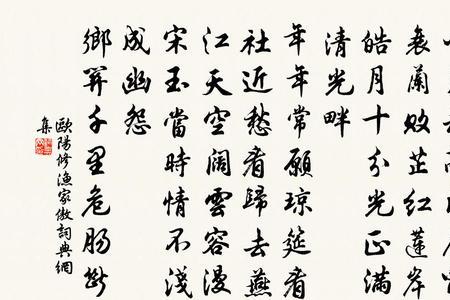 衰蘭敗芷紅蓮岸
皓月十分光正滿
清光畔
年年常願瓊筵看
社近愁看歸去燕
江天空闊雲容漫
宋玉當時情不淺
成幽怨
鄉關千里危腸斷
歐陽修漁家傲詞典網
集